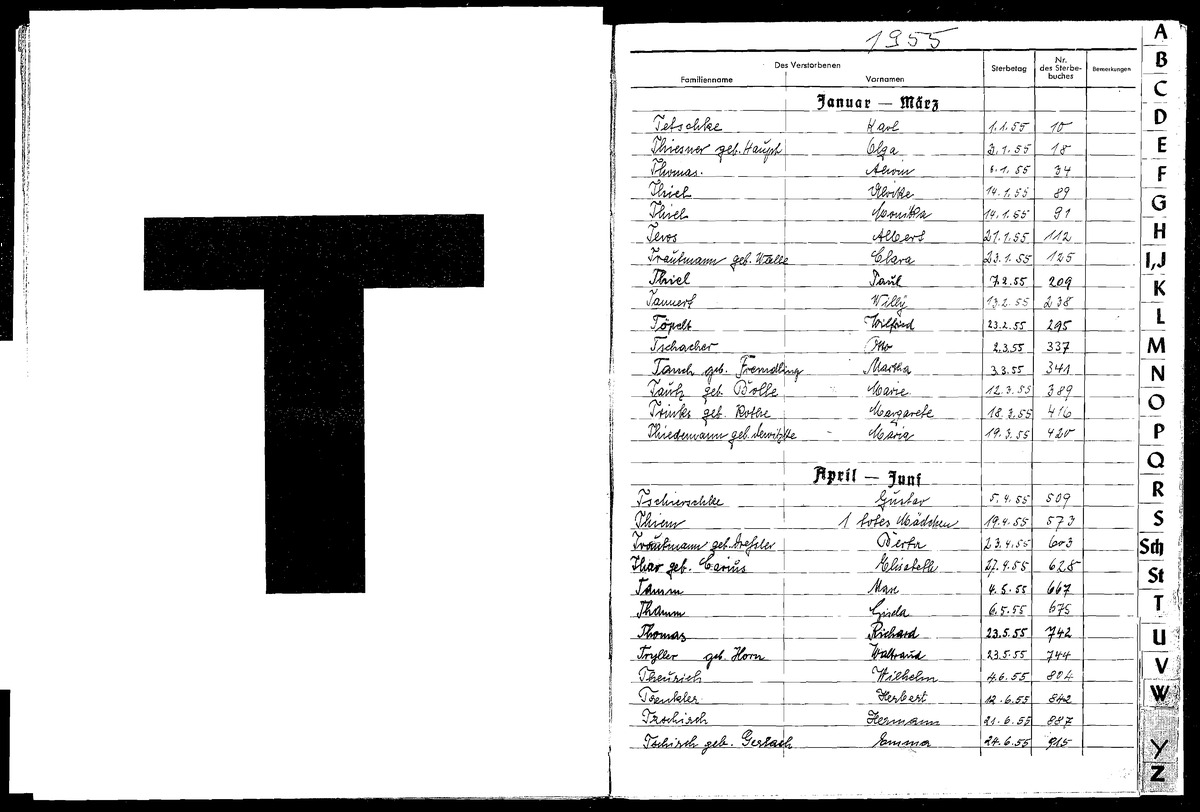 T
1955
Des Verstorbenen
Familienname Vornamen Sterbetag Nr. des Sterbe-buches Bemerkungen
Januar — März
Tetschke Karl 1.1.55 10
Thiesner geb. Haupt Olga 3.1.55 18
Thomas. Alwin 6.1.55 34
Thiel Ulrike 14.1.55 89
Thiel Monika 14.1.55 91
Tews Albert 21.1.55 112
Trautmann geb. Clara 23.1.55 125
Thiel Paul 7.2.55 209
Tannert Willy 13.2.55 238
Töpelt Wilfried 23.2.55 295
Tschacher Otto 2.3.55 337
Tauch geb. Fremdling Martha 3.3.55 341
Tautz geb. Bolle Marie 12.3.55 389
Trinks geb. Rothe Margarete 18.3.55 416
Thiedemann geb. Maria 19.3.55 420
April — Juni
Tschierschke Gustav 5.4.55 509
Thiem 1 totes Mädchen 19.4.55 573
Trautmann geb. Berta 23.4.55 603
Thar geb. Carius Elisabeth 27.4.55 628
Tamm Max 4.5.55 667
Thamm Gisela 6.5.55 675
Thomas Richard 23.5.55 742
Tryller geb. Horn Waltraud 23.5.55 744
Theurich Wilhelm 4.6.55 804
Trenkler Herbert 12.6.55 842
Tzschisch Hermann 21.6.55 887
Tschirch geb. Gerlach Emma 24.6.55 915
A
B
C
D
E
F
G
H
I,J
K
L
M
N
O
P
Q
R
S
Sch
St
T
U
V
W
Y
Z